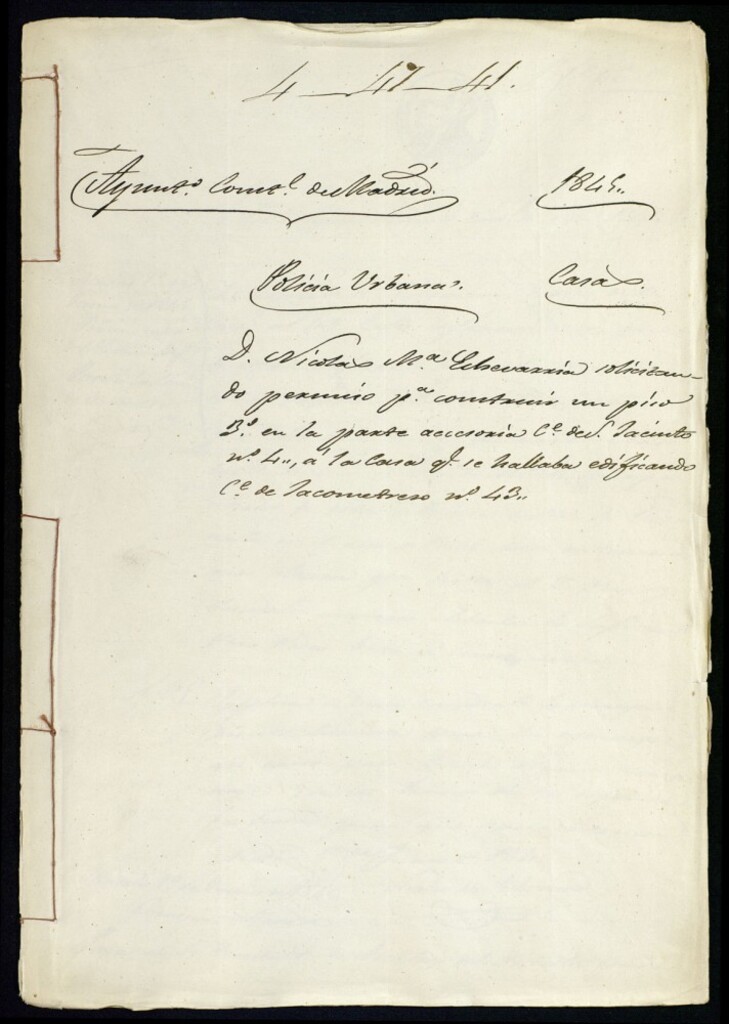 4-47-41.
Ayunto. Constl. de Madrid. 1845..
Policia Urbana. Casas.
D. Nicolas Ma. Echevarria solicitan-
do permiso pa. construir un piso
3o. en la parte accesoria Ce. de S. Jacinto
no. 4.., á la Casa qe. se hallaba edificando
Ce. de Jacometrezo no. 43..